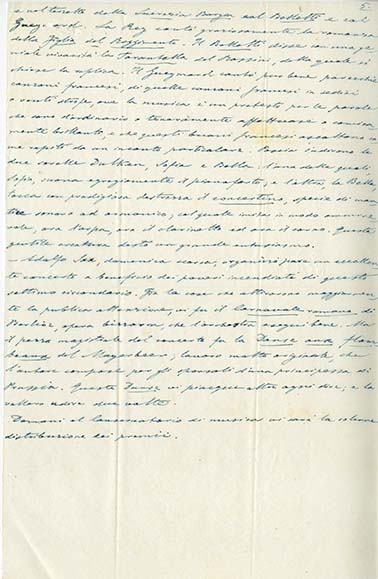 5.
e nel terzetto della Lucrezia Borgia col Bellotti e col
Gueymard. La Rey cantò graziosamente la romanza
della Figlia del Reggimento. Il Bellotti disse con una ge
niale vivacità la Tarantella del Rossini, della quale si
chiese la replica. Il Guegnard cantò pur bene parecchie
canzoni francesi, di quelle canzoni francesi in sedici
o venti strofe, ove la musica è un pretesto per le parole
che sono d'ordinario o teneramente affettuose o comica
mente brillanti, e che questo buoni francesi ascoltano co
me rapiti da un incanto particolare. Poscia indirono le
due sorelle Dulken, Sofia e Bella: l'una delle quali,
Sofia, suona egregiamente il pianoforte, e l'altra la Bella
tocca con prodigiosa destrezza il concertino, specie di man
tice sonoro ad armonica, col quale imita in modo ammire
vole, ora l'arpa, ora il clarinetto ed ora il corno. Questa
gentile creatura destò un grande entusiasmo.
– Adolfo Sax, domenica scorsa, organizzò pure un eccellen
te concerto a beneficio dei poveri incendiati di questo
settimo circondario. Fra le cose che attirarono maggiormen
te la pubblica attenzione, vi fu il Carnevale romano di
Berlioz, opera bizzarra che l'orchestra eseguì bene. Ma
il pezzo magistrale del concerto fu la Danse aux flam
beaux del Meyerbeer; lavoro molto originale che
l'autore compose per gli sponsali d'una principessa di
Prussia. Questa Danse vi piacque oltre ogni dire; e la
vollero udire due volte.
Domani al Conservatorio di musica vi sarà la solenne
distribuzione dei premii.